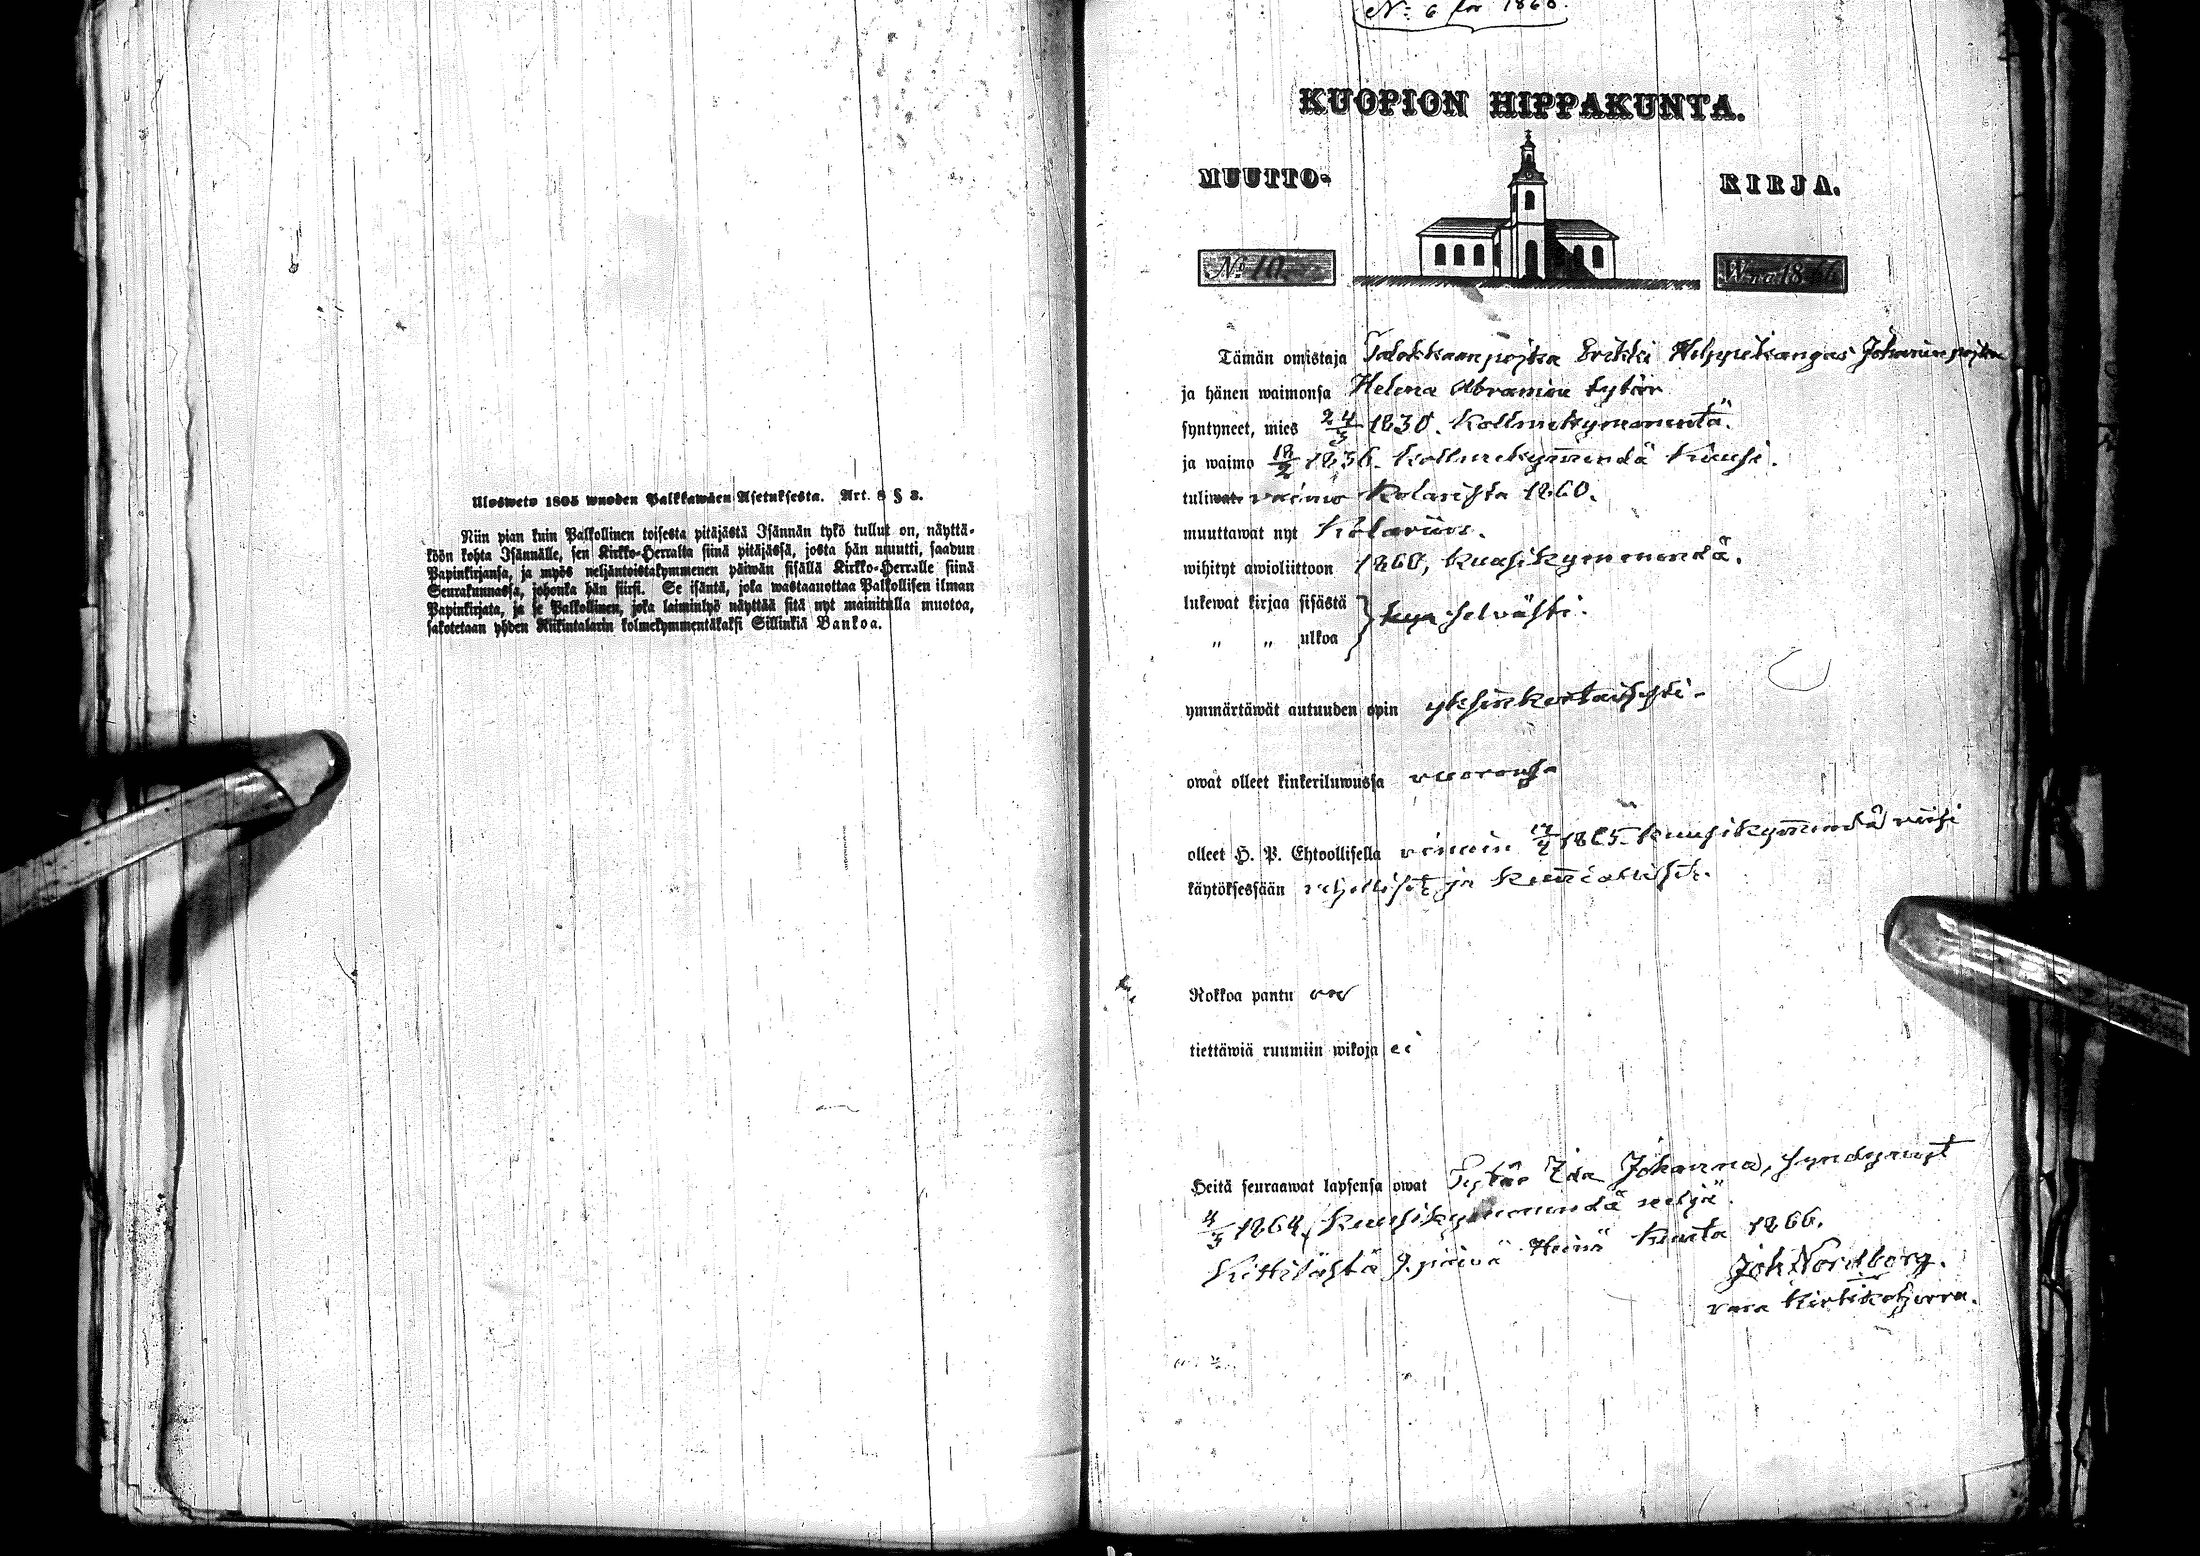 Ulosweto 1805 wuoden Palkkawäen Asetuksesta. Art. 8 § 3.
Niin pian kuin Palkollinen toisesta pitäjästä Isännän tykö tullut on, näyttä-
köön kohta Isännälle, sen Kirkko-Herralta siinä pitäjässä, josta hän muutti, saadun
Papinkirjansa, ja myös neljäntoistakymmenen päiwän sisällä Kirkko-Herralle siinä
Seurakunnassa, johonka hän siirsi. Se isäntä, joka wastaanottaa Palkollisen ilman
Papinkirjata, ja se Palkollinen, joka laiminlyö näyttää sitä nyt mainitulla muotoa,
sakotetaan yhden Riikintalarin kolmekymmentäkaksi Sillinkiä Bankoa.
No 6 för 1866.
KUOPION HIPPAKUNTA.
MUUTTO- KIRJA.
No 10. W:na 1866
Tämän omistaja Talokkaan pojka Erikki Johanin pojka
ja hänen waimonsa Helena Abramin tytär
syntyneet, mies 24/3 1830. kollmekymmentä.
ja waimo 18/2 1836. kollmekym̄endä kuusi.
tuliwat waimo Kolarista 1860.
muuttawat nyt Kolariin.
wihityt awioliittoon 1860, kuusikymmendä.
lukewat kirjaa sisästä } kyn selvästi.
" " ulkoa
ymmärtäwät autuuden opin yksinkertaisesti.
owat olleet kinkeriluwussa vuoronsa
olleet H. P. Ehtoollisella viimein 1865. kuusikym̄endä viisi
käytöksessään rehelliset ja kunnialliset.
Rokkoa pantu on
tiettäwiä ruumiin wikoja ei
Heitä seuraawat lapsensa owat Tytär Ida Johanna, syndynyt
4/3 1864, kuusikymmendä neljä.
Kittilästä 9. päivä Heinä kuuta 1866.
Joh Nordberg.
vara kirkkoherra.